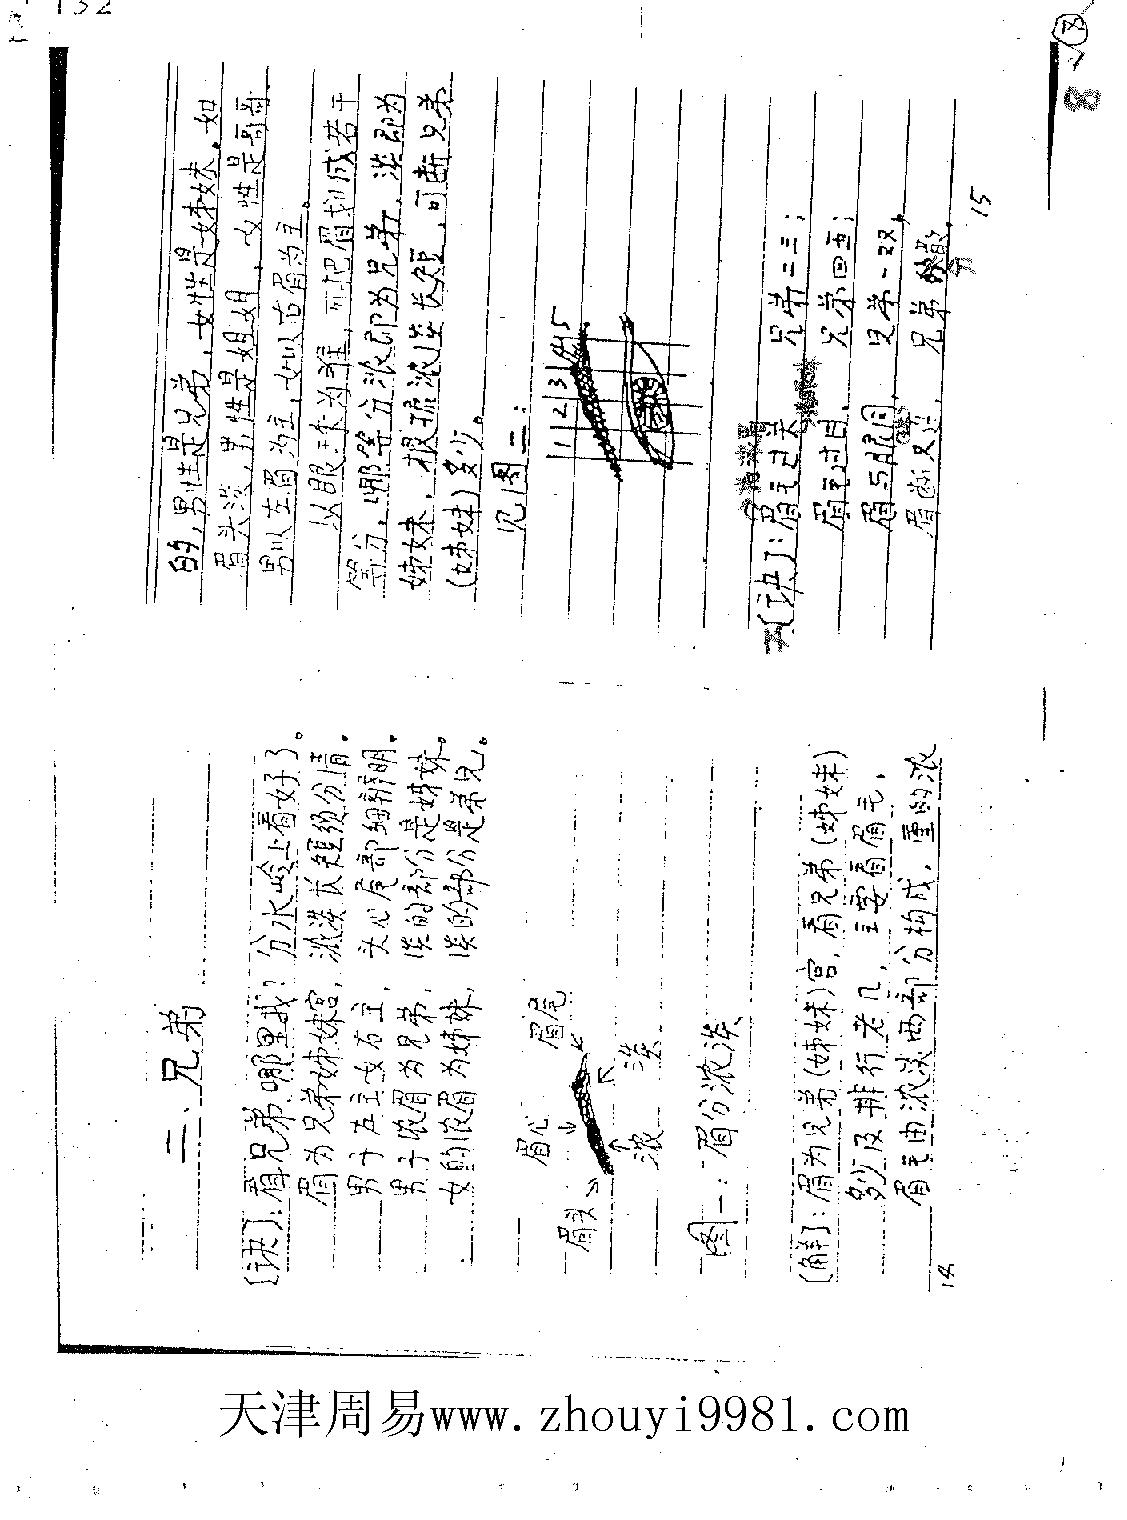 二、兄弟
[诀]:看兄弟哪里找?分水岭上看好了。
眉为兄弟姊妹宫,浓淡长短须分清。
男子左主女右主,头心尾部细辨明。
男子浓眉为兄弟,淡的部分是姊妹。
女的浓眉为姊妹,淡的部分是弟兄。
眉头
眉心
眉尾
浓
淡
图一:眉分浓淡
[解]:眉为兄弟(姊妹)宫,看兄弟(姊妹)
多少及排行老几,主要看眉毛,
眉毛由浓淡两部分构成,重的浓
14
的,男性是兄弟,女性是姊妹,如
眉头淡,男性是姐姐,女性是哥哥
男以左眉为主,女以右眉为主。
以眼球为准,可把眉划成若干
等分,哪等分浓即为兄弟,淡即为
姊妹,根据浓淡长短,可断兄弟
(姊妹)多少。
见图二:
1 2 3 4 5
[诀]:眉毛过关 兄弟二三;
眉毛过目, 兄弟四五;
眉与眼同 兄弟一双,
眉断又连, 兄弟
15
132
8
天津周易www.zhouyi9981.com